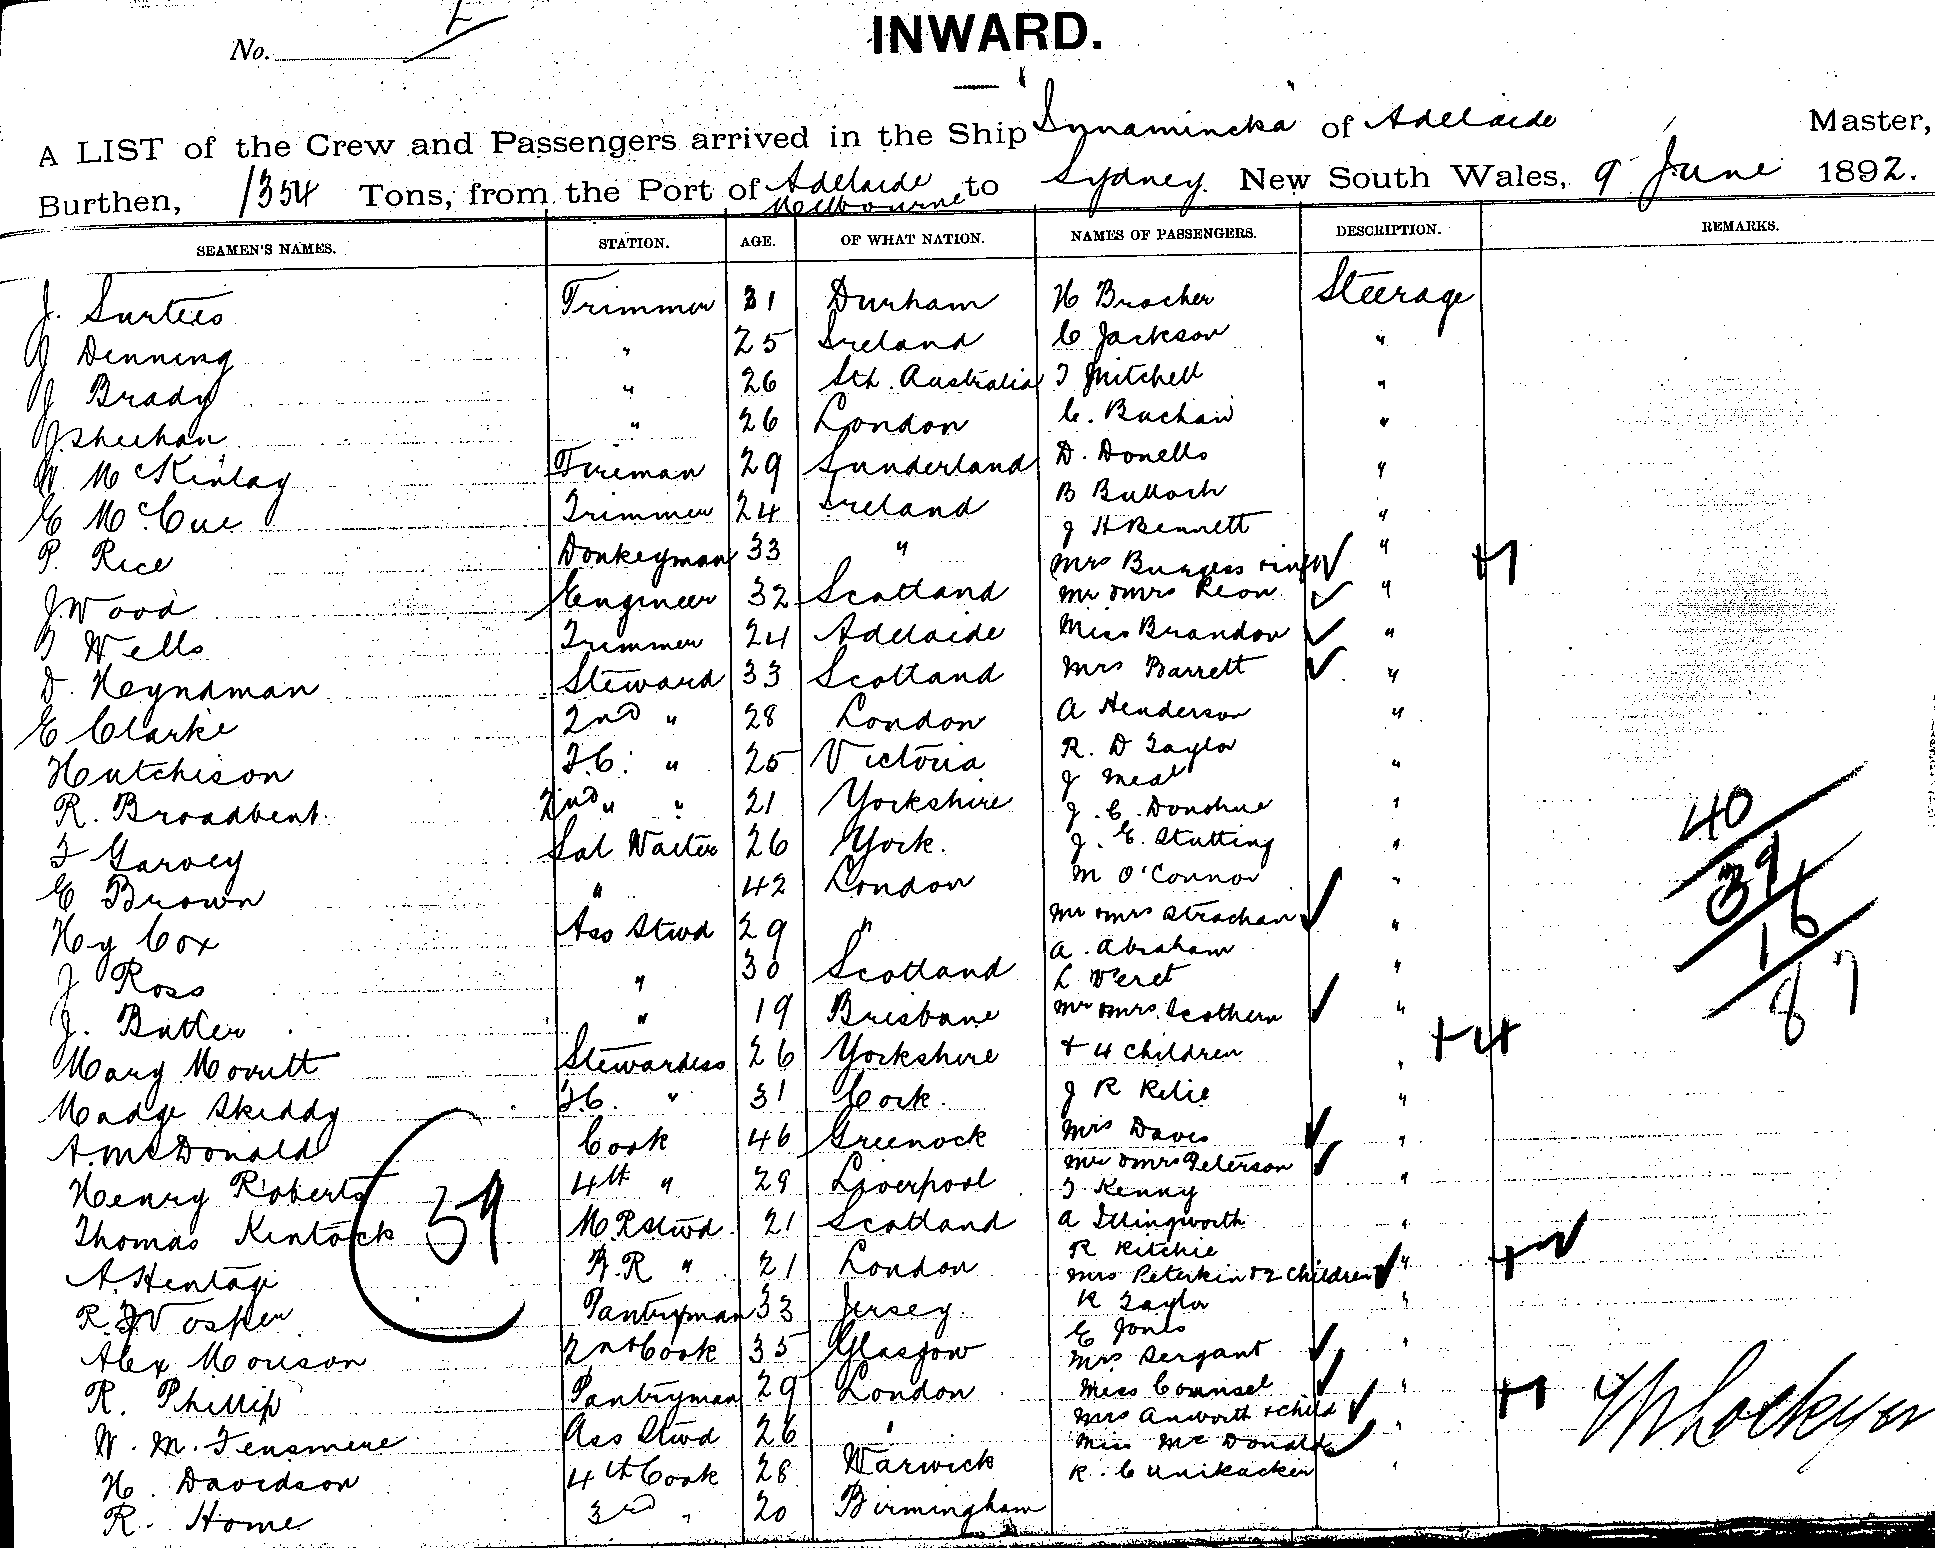 No.
INWARD.
A LIST of the Crew and Passengers arrived in the Ship "Innamincka" of Adelaide Master,
Burthen, 1354 Tons, from the Port of Adelaide Melbourne to Sydney New South Wales, 9 June 1892.
SEAMEN'S NAMES. STATION. AGE. OF WHAT NATION. NAMES OF PASSENGERS. DESCRIPTION. REMARKS.
J. Surtees Trimmer 31 Durham H Bracher Steerage
J Denning " 25 Ireland C Jackson "
J Brady " 26 Sth. Australia T Mitchell "
J Sheehan " 26 London C. Buchan "
W McKinlay Fireman 29 Sunderland D. Donells "
E McCue Trimmer 24 Ireland B Bulloch "
P. Rice Donkeyman 33 " J H Bennett "
Mrs Burgess + inft + 1
J Wood Engineer 32 Scotland Mr & Mrs Reon "
T Wells Trimmer 24 Adelaide Miss Brandon "
D. Heyndman Steward 33 Scotland Mrs Barrett "
E Clarke 2nd " 28 London A Henderson "
Hutchison F.C. " 25 Victoria R. D Taylor "
J Meal
R. Broadbent 2nd " " 21 Yorkshire J. C. Donohue "
F Garvey Sal Waiter 26 York. J. E. Stutting "
E Brown " 42 London M O'Connor "
Hy Cox Ass Stwd 29 " Mr & Mrs Strachan "
A. Abraham
J Ross " 30 Scotland L Veret "
J. Butler " 19 Brisbane Mr & Mrs Scothern "
Mary Morritt Stewardess 26 Yorkshire + 4 children " + 4
Madge Skeddy F.C. " 31 Cork. J R Relie "
A. McDonald Cook 46 Greenock Mrs Daves "
Mr & Mrs Peterson
Henry Roberts 4th " 28 Liverpool T Kenny "
Thomas Kintock M.R Stwd 21 Scotland A Illingworth "
R Ritchie
A. Hentage F.R " 21 London Mrs Peterkin & 2 children " + 2
R. J Vosper Pantryman 33 Jersey. R Taylor "
E Jones
Alex Morison 2nd Cook 35 Glasgow Mrs Sergant "
R. Phillip Pantryman 29 London Miss Counsel "
Mrs Anworth + child + 1
W. M. Tensmere Ass Stwd 26 " Miss McDonald "
H. Davidson 4th Cook 28 Warwick R. C "
R. Home 3rd " 20 Birmingham
39
40
39
16
8 7